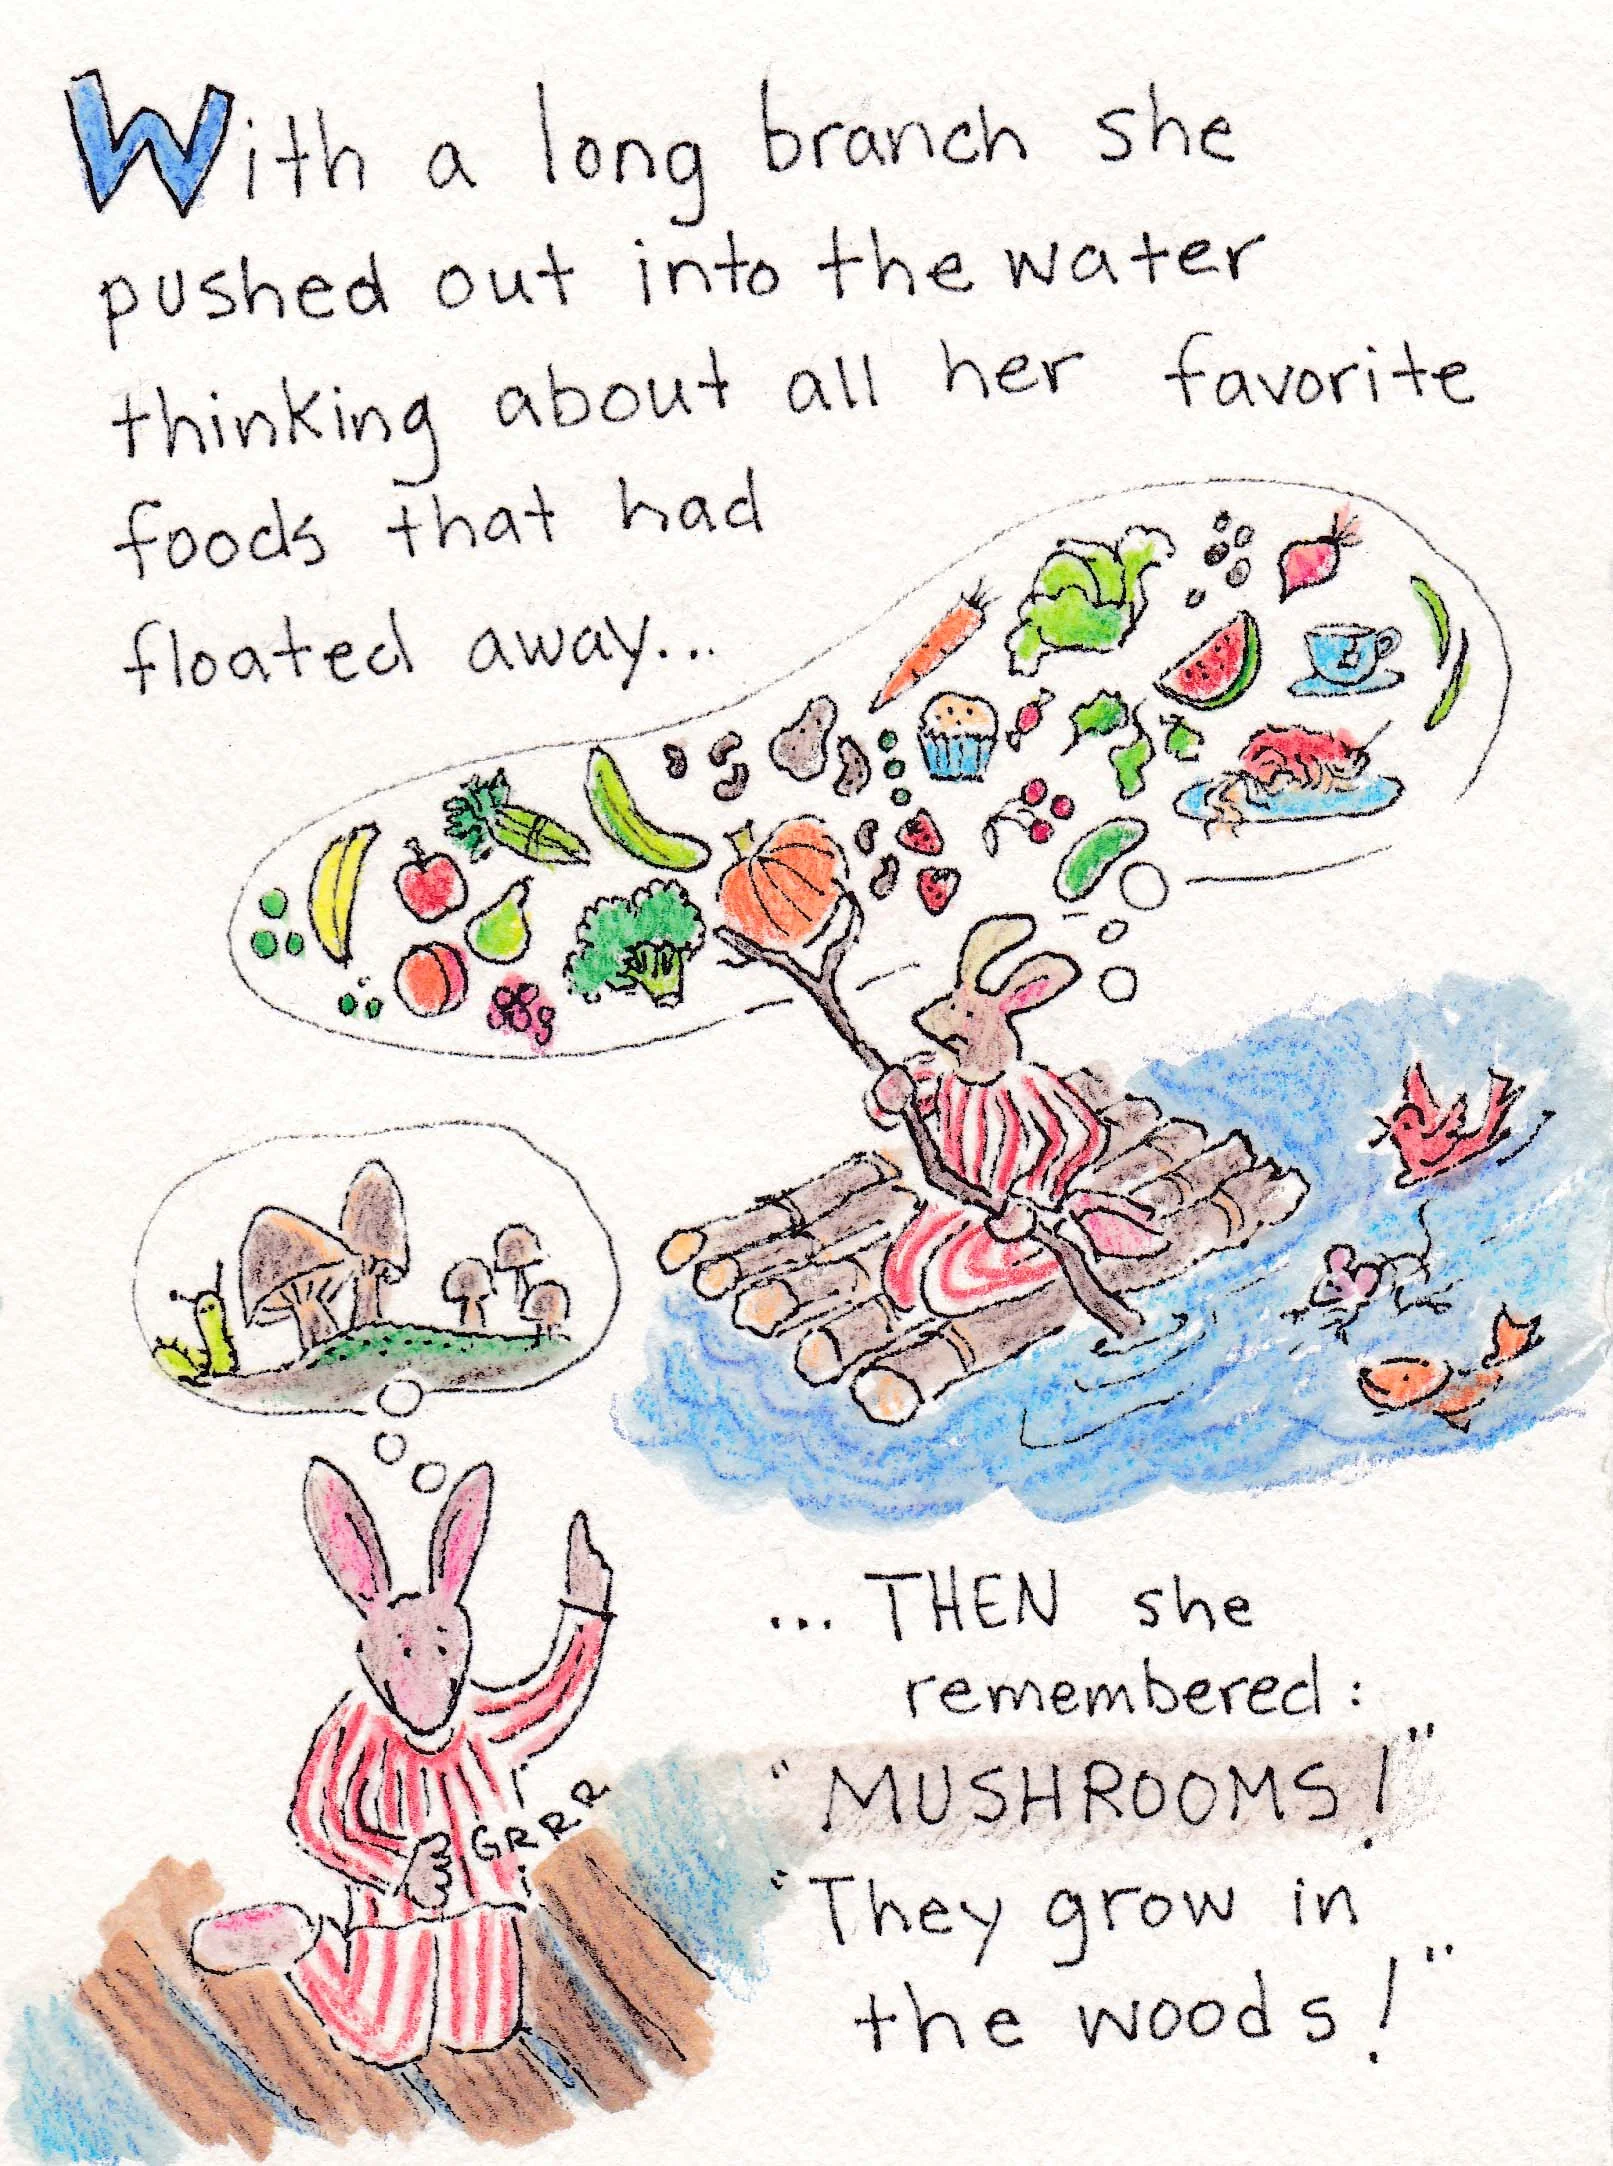 With a long branch she
pushed out into the water
thinking about all her favorite
foods that had
floated away...
GRRR
... THEN she
remembered:
"MUSHROOMS!"
"They grow in
the woods!"